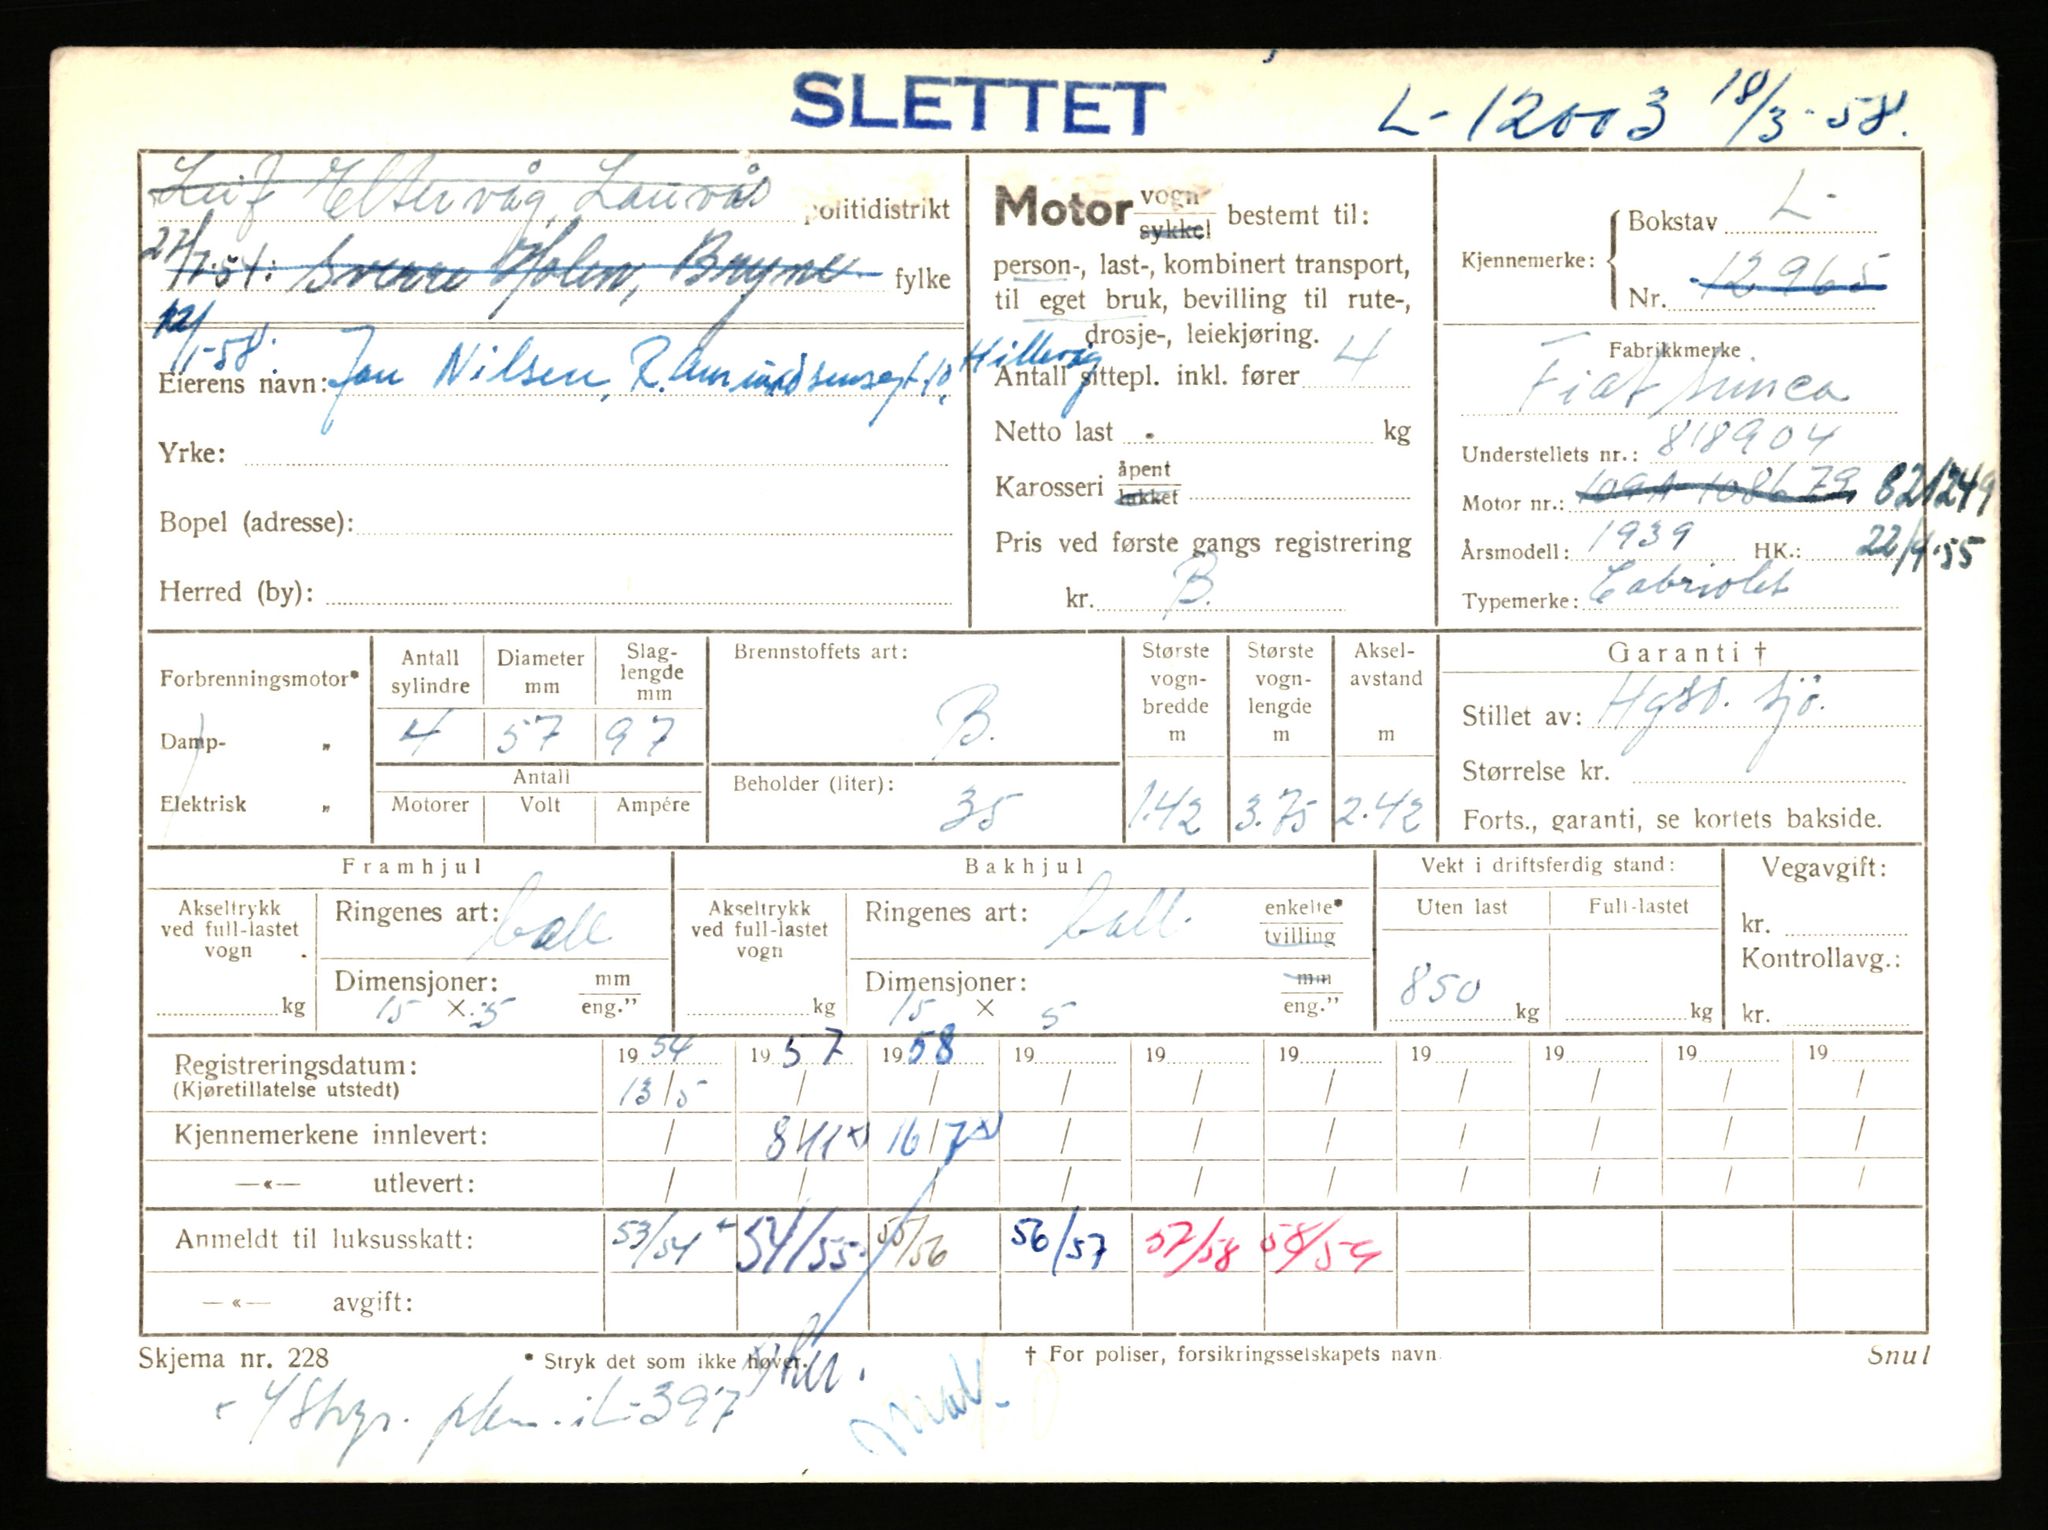 SLETTET
L-12003 18/3-58.
Leif Eltervåg, Lauvås politidistrikt
27/7-54: Sverre Holen, Bryne fylke
12/1-58.
Eierens navn: Jan Nilsen, R. Amundsensgt. 10, Hillevåg
Yrke:
Bopel (adresse):
Herred (by):
Motor vogn
sykkel bestemt til:
person-, last-, kombinert transport,
til eget bruk, bevilling til rute-,
drosje-, leiekjøring.
Antall sittepl. inkl. fører 4
Netto last kg
Karosseri åpent
lukket
Pris ved første gangs registrering
kr. B.
Kjennemerke: Bokstav L-
Nr. 12965
Fabrikkmerke
Fiat Simca
Understellets nr.: 818904
Motor nr.: 109A 108679 821249
Årsmodell: 1939 HK.: 22/9-55
Typemerke: Cabriolet
Forbrenningsmotor*
Damp- „
Elektrisk „
Antall sylindre Diameter mm Slag-lengde mm
4 57 97
Antall
Motorer Volt Ampére
Brennstoffets art:
B.
Beholder (liter):
35
Største vogn-bredde m Største vogn-lengde m Aksel-avstand m
1.42 3.75 2.42
Garanti †
Stillet av: Hgsd. Sjø.
Størrelse kr.
Forts., garanti, se kortets bakside.
Framhjul
Akseltrykk ved full-lastet vogn
kg
Ringenes art: ball
Dimensjoner: mm
15 × 5 eng."
Bakhjul
Akseltrykk ved full-lastet vogn
kg
Ringenes art: ball. enkelte*
tvilling
Dimensjoner: mm
15 × 5 eng."
Vekt i driftsferdig stand:
Uten last Full-lastet
850 kg kg
Vegavgift:
kr.
Kontrollavg.:
kr.
Registreringsdatum: 1954 1957 1958 19 19 19 19 19 19 19
(Kjøretillatelse utstedt) 13/5 / / / / / / / / /
Kjennemerkene innlevert: / 8/11 x) 16/7 x) / / / / / / /
—«— utlevert: / / / / / / / / / /
Anmeldt til luksusskatt: 53/54 54/55 55/56 56/57 57/58 58/59
—«— avgift:
Skjema nr. 228 * Stryk det som ikke høver. † For poliser, forsikringsselskapets navn. Snul
L-397